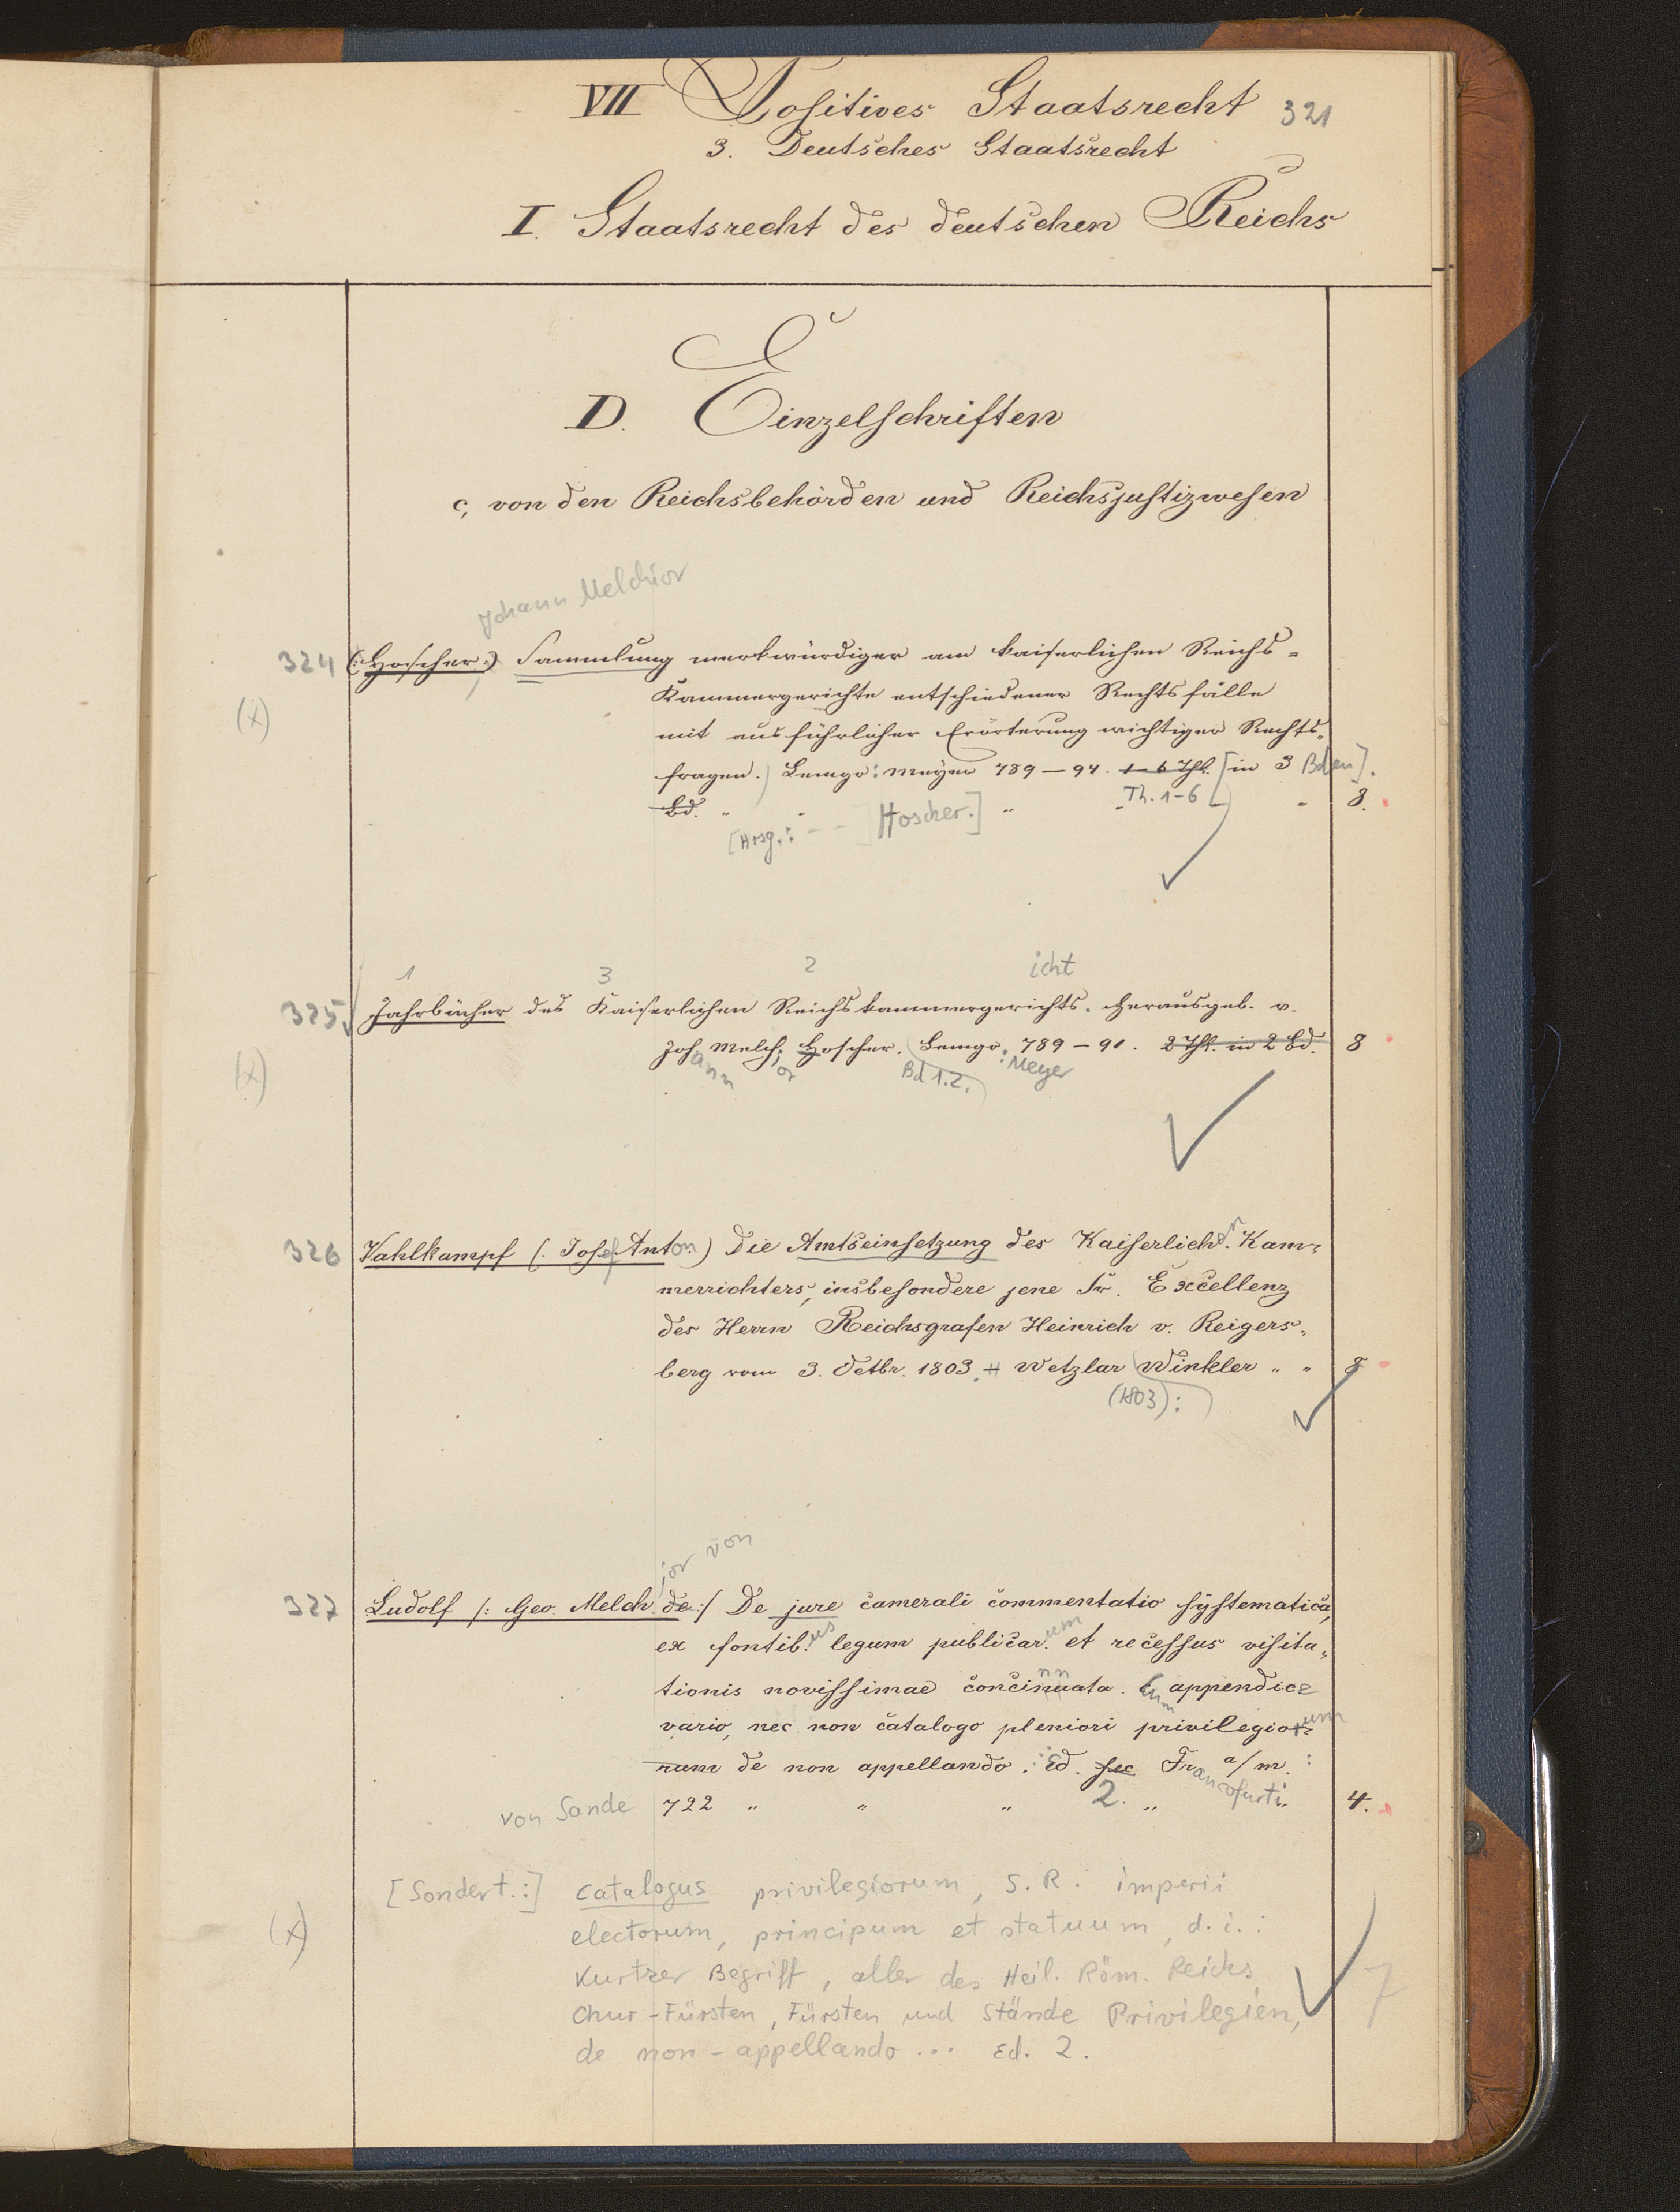 VII Positives Staatsrecht 321
3. Deutsches Staatsrecht
I. Staatsrecht des deutschen Reichs
D. Einzelschriften
c, von den Reichsbehörden und Reichsjustizwesen
Johann Melchior
324 (: Hoscher.) Sammlung merkwürdiger am kaiserlichen Reichs=
(x) Kammergerichte entschiedener Rechtsfälle
mit ausführlicher Erörterung wichtiger Rechts=
fragen. Lemgo: Meyer 789–94. 1–6 Thl. [in 3 Bden].
Bd. " " " Th. 1-6 " 8.
[Hrsg.: – – Hoscher.]
1 3 2 icht
325 Jahrbücher des Kaiserlichen Reichskammergerichts. Herausgeb. v.
Joh. Melch. Hoscher. Lemgo. 789–91. 2 Thl. in 2 Bd. 8
(x) ann or Bd 1.2. : Meyer
326 Vahlkampf (. Josef Anton.) Die Amtseinsetzung des Kaiserlichn. Kam=
merrichters, insbesondere jene Sr. Excellenz
des Herrn Reichsgrafen Heinrich v. Reigers=
berg vom 3. Octbr. 1803. Wetzlar Winkler " " 8
(1803):
ior von
327 Ludolf /: Geo. Melch. de :/ De jure camerali commentatio systematica,
ex fontib.us legum publicar.um et recessus visita=
tionis novissimae concinnata. Cum appendice
vario, nec non catalogo pleniori privilegior=um
num de non appellando. Ed. sec Fr a/m. :
ancofurti
von Sande 722 " " " 2. " " 4.
[Sondert.:] Catalogus privilegiorum, S. R. imperii
(x) electorum, principum et statuum, d. i. :
Kurtzer Begriff, aller des Heil. Röm. Reichs
Chur-Fürsten, Fürsten und Stände Privilegien, 7
de non-appellando ... Ed. 2.